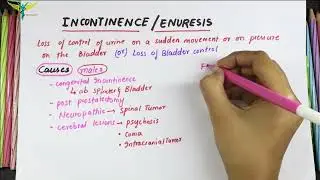 INCONTINENCE/ENURESIS
Loss of control of urine on a sudden movement or on pressure
on the Bladder (or) Loss of Bladder control
Causes males
- congenital Incontinence
↳ ab sphincter & Bladder
- post prostatectomy
- Neuropathic → Spinal Tumor
- cerebral lesions → psychosis
• Coma
• Intracranial Tumor